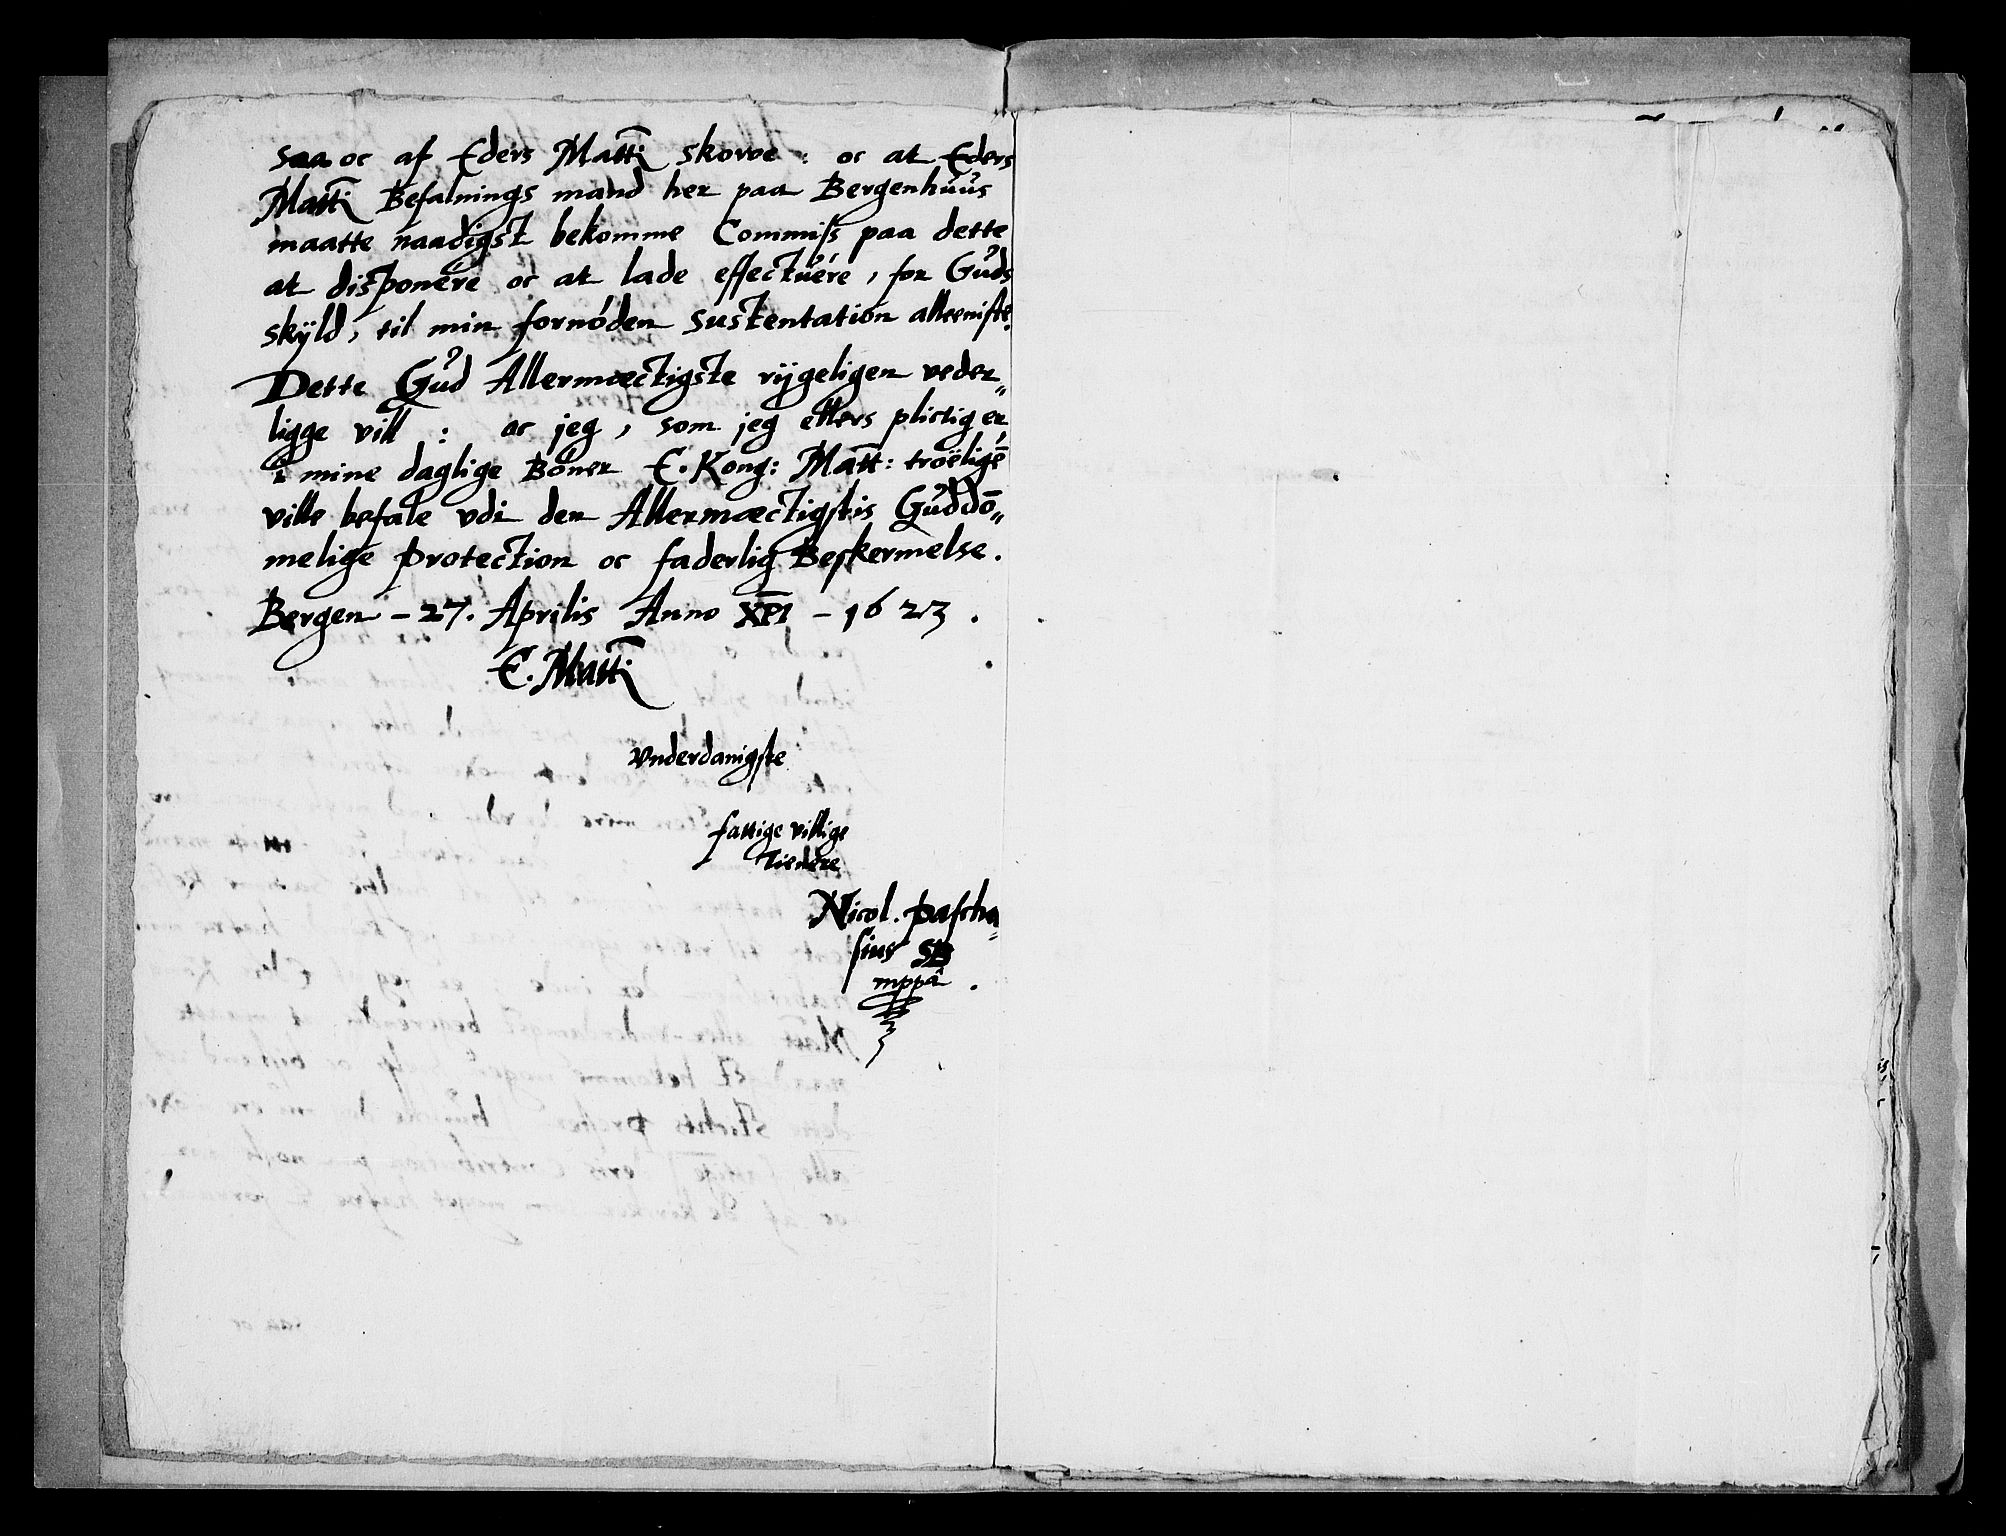 saa oc af Eders Matti skowe : oc at Eders
Matti Befalnings mand her paa Bergenhuus
maatte naadigst bekomme Commiss paa dette
at disponere oc at lade effectuere, for Guds
skyld, til min fornöden sustentation alleeniste.
Dette Gud Allermæctigste rijgeligen veder„
ligge vill : oc jeg, som jeg ellers plictig er,
i mine daglige Böner E. Kong: Matt: troëligē
ville befale vdi den Allermæctigstis Guddō„
melige Protection oc faderlig Beskermelse.
Bergen – 27. Aprilis Anno XPI – 1623.
E. Matti
vnderdanigste
fattige villige
tienere
Nicol. Pascha„
sius SB
mppā